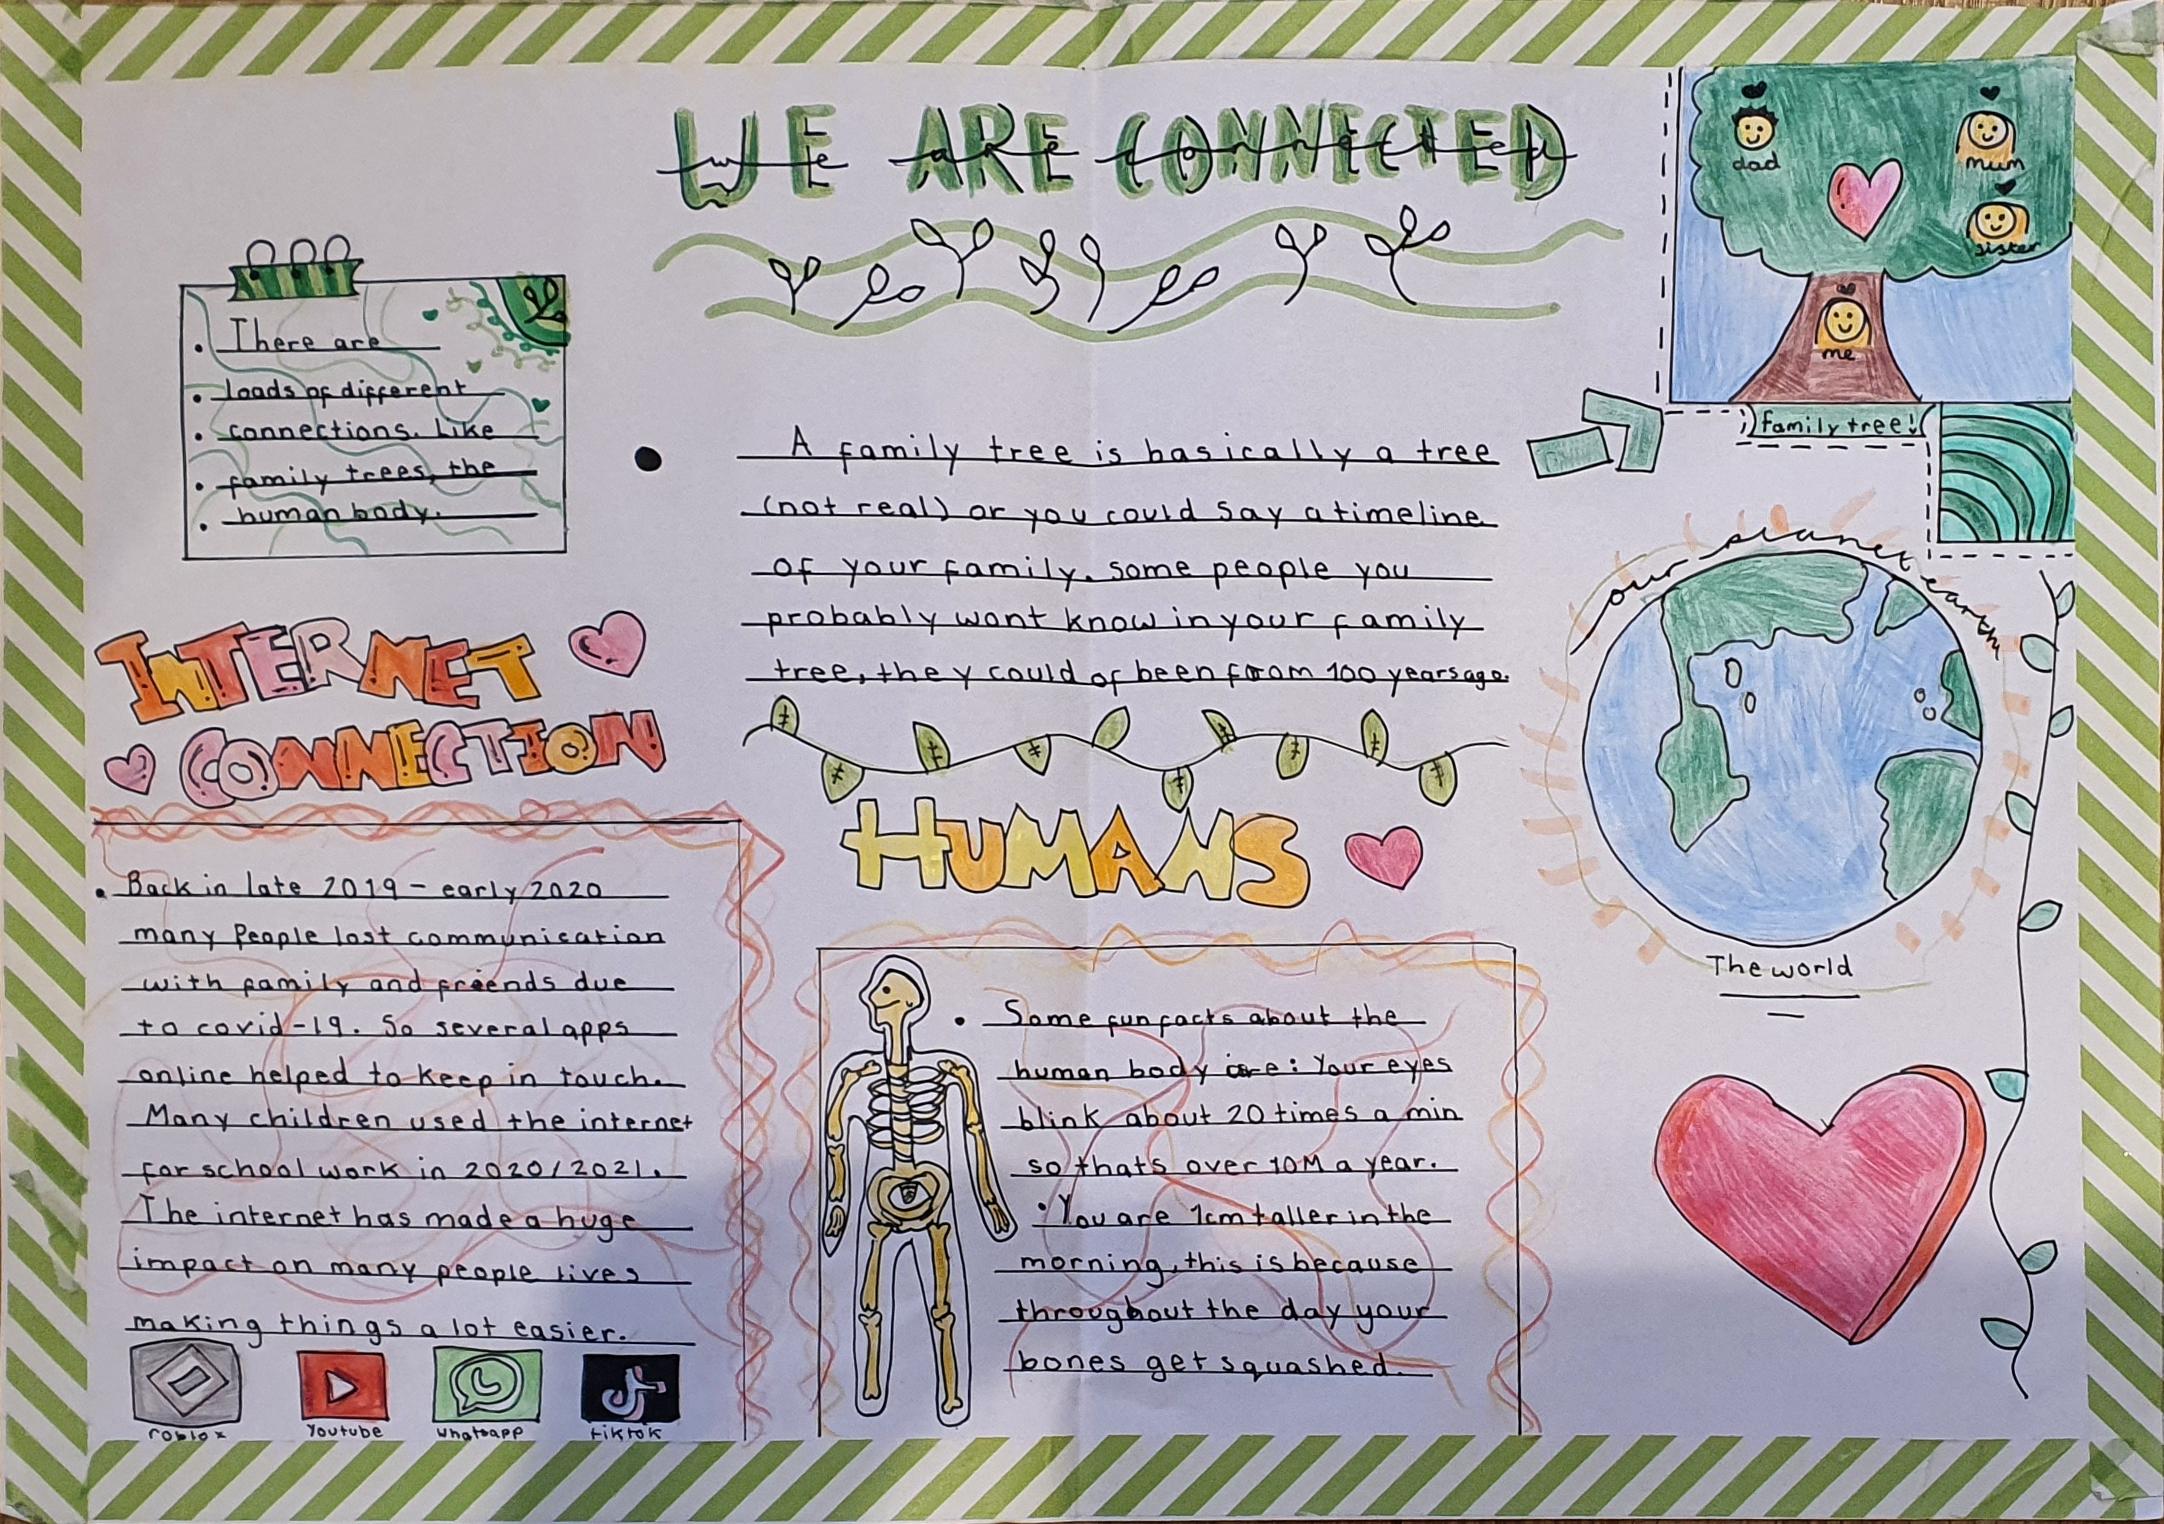 WE ARE CONNECTED
we are connected
There are
loads of different
connections. Like
family trees, the
human body.
dad
mum
sister
me
family tree!
A family tree is basically a tree
(not real) or you could say a timeline
of your family. some people you
probably wont know in your family
tree, they could of been from 100 years ago.
our planet earth
The world
INTERNET
CONNECTION
Back in late 2019 - early 2020
many People lost communication
with family and friends due
to covid-19. So several apps
online helped to keep in touch.
Many children used the internet
for school work in 2020/2021.
The internet has made a huge
impact on many people lives
making things a lot easier.
roblox
Youtube
whatsapp
tiktok
HUMANS
Some fun facts about the
human body are: Your eyes
blink about 20 times a min
so thats over 10M a year.
You are 1cm taller in the
morning, this is because
throughout the day your
bones get squashed.